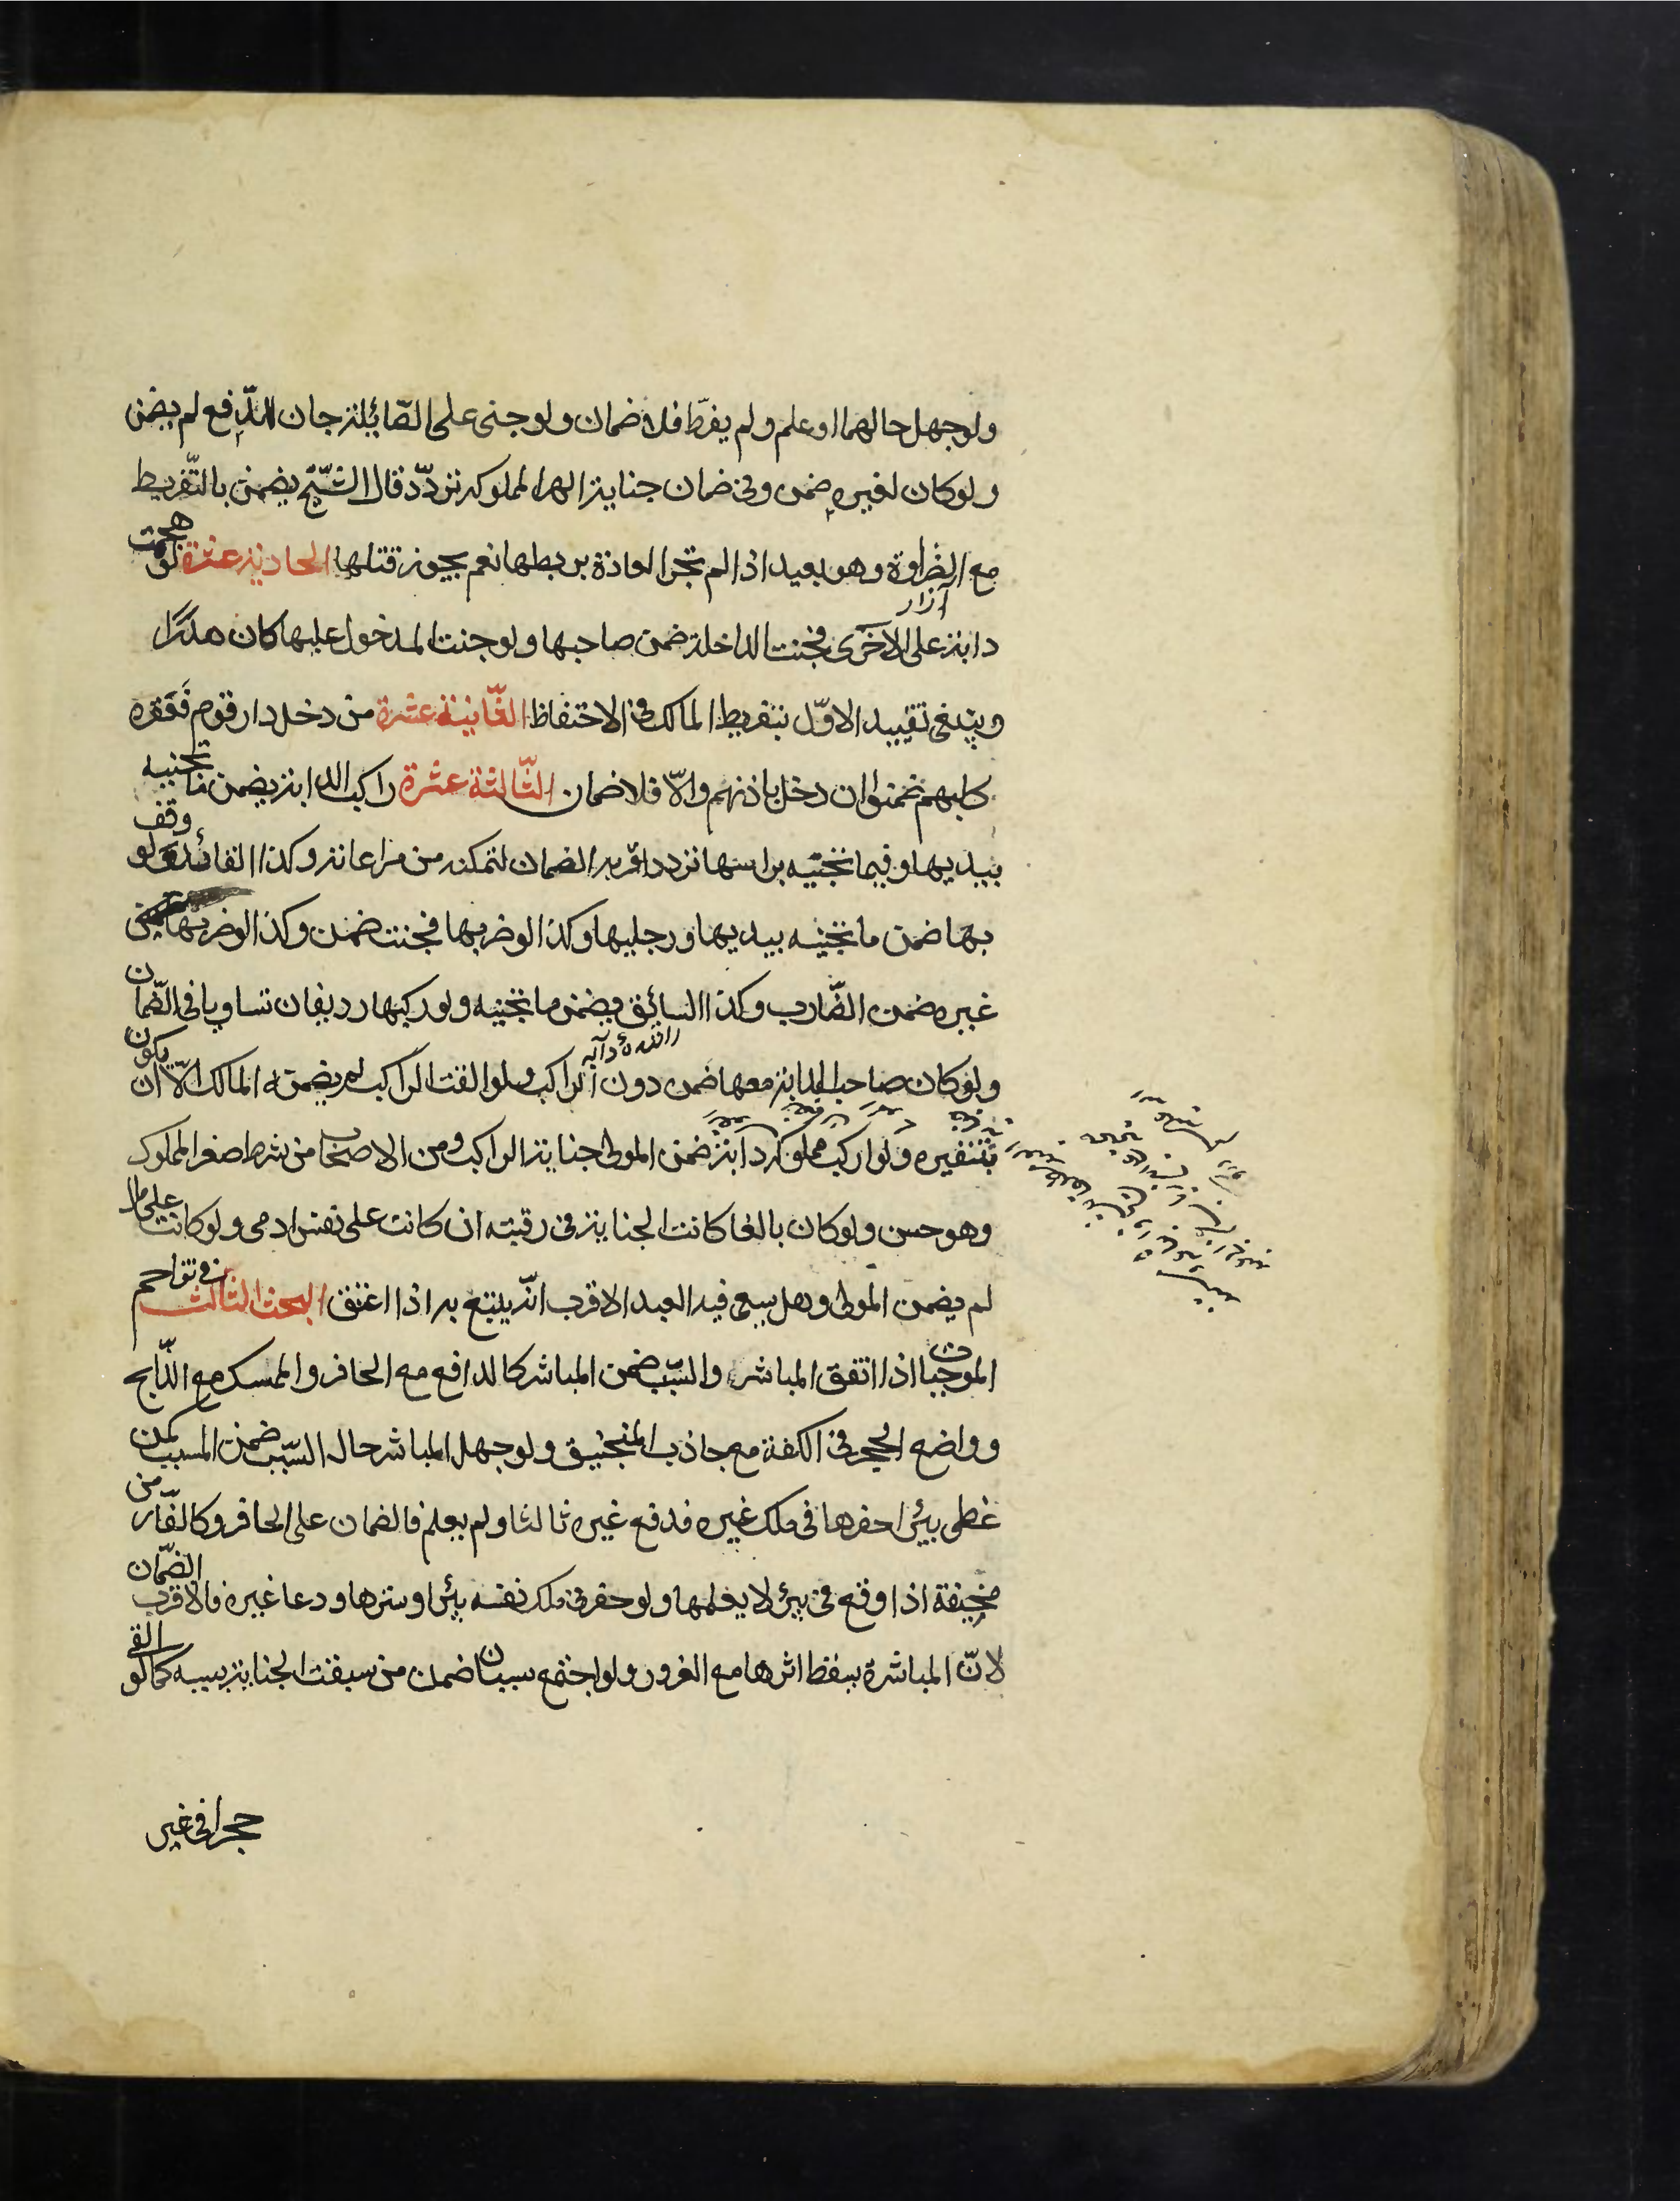 ولو جهل حالهما او علم ولم يفرّط فلا ضمان ولو جنى على الصّائلة جان للدّفع لم يضمن
ولو كان لغيره ضمن وفى ضمان جناية الهرة المملوكة تردّد قال الشّيخ يضمن بالتّفريط
مع الضراوة وهو بعيد اذا لم تجر العادة بربطها نعم يجوز قتلها الحادية عشرة لو هجمت
دابة على الاخرى فجنت الداخلة ضمن صاحبها ولو جنت المدخول عليها كان هدرًا
وينبغى تقييد الاوّل بتفريط المالك فى الاحتفاظ الثّانية عشرة من دخل دار قوم فَعَقَره
كلبهم ضمنوا ان دخل باذنهم والّا فلا ضمان الثّالثة عشرة راكب الدابة يضمن ما تجنيه
بيديها وفيما تجنيه براسها تردد اقربه الضمان لتمكنه من مراعاته وكذا القائد ولو وقف
بها ضمن ما تجنيه بيديها ورجليها وكذا لو ضربها فجنت ضمن وكذا لو ضربها
غيره ضمن الضّارب وكذا السائق يضمن ما تجنيه ولو ركبها رديفان تساويا فى الضّمان
ولو كان صاحب الدابة معها ضمن دون الراكب ولو القت الراكب لم يضمنه المالك الّا ان يكون
بتنفيره ولو اركب مملوكه دابة ضمن المولى جناية الراكب ومن الاصحاب من شرط صغر المملوك
وهو حسن ولو كان بالغا كانت الجناية فى رقبته ان كانت على نفس ادمى ولو كانت على مال
لم يضمن المولى وهل يسعى فيه العبد الاقرب انّه يتبع به اذا اعتق البحث الثالث فى تزاحم
الموجبات اذا اتفق المباشر والسّبب ضمن المباشر كالدافع مع الحافر والممسك مع الذّابح
وواضع الحجر فى الكفة مع جاذب المنجنيق ولو جهل المباشر حال السّبب ضمن المسبب كمن
غطى بئرًا حفرها فى ملك غيره فدفع غيره ثالثا ولم يعلم فالضمان على الحافر وكالفّار من
مخيفة اذا وقع فى بئر لا يعلمها ولو حفر فى ملك نفسه بئرا وسترها ودعا غيره فالاقرب الضّمان
لانّ المباشرة يسقط اثرها مع الغرور ولو اجتمع سببان ضمن من سبقت الجناية بسببه كما لو القى
حجرا فى غير